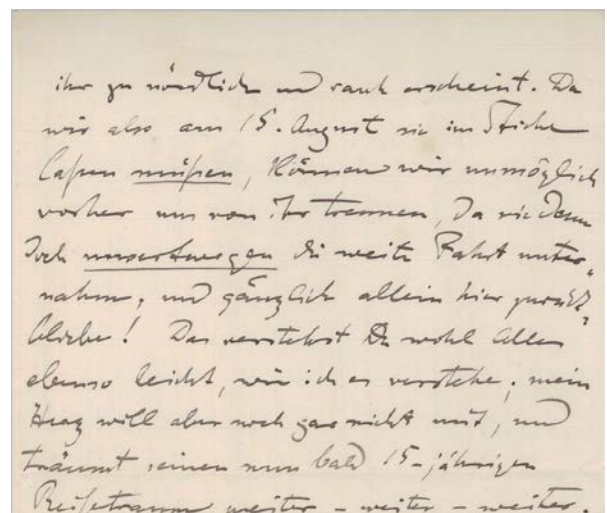 ihr zu nördlich und rauh erscheint. Da
wir also am 15. August sie im Stiche
laßen müßen, können wir unmöglich
vorher uns von ihr trennen, da sie dann
doch unsertwegen die weite Fahrt unter-
nahm, und gänzlich allein hier zurück
bliebe! Das verstehst Du wohl
ebenso leicht, wie ich es verstehe; mein
Herz will aber noch gar nicht mit, und
träumt seinen nun bald 15-jährigen
Reisetraum weiter - weiter - weiter.